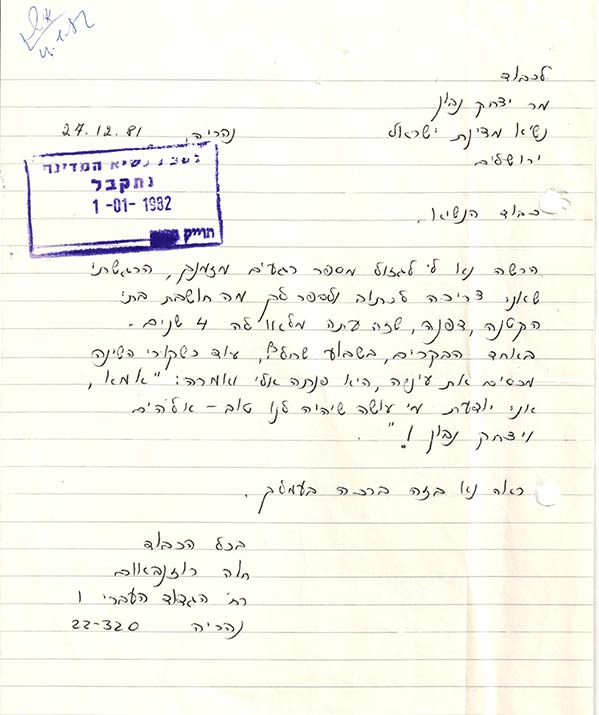 4.1.82
לכבוד
מר יצחק נבון
נשיא מדינת ישראל
ירושלים
נהריה, 27.12.81
לשכת נשיא המדינה
נתקבל
1-01-1982
תוייק
כבוד הנשיא,
הרשה נא לי לגזול מספר רגעים מזמנך, הרגשתי
שאני צריכה לכתוב ולספר לך מה חושבת בתי
הקטנה, דפנה, שזה עתה מלאו לה 4 שנים -
באחד הבקרים, בשבוע שחלף, עוד כשקורי השינה
מכסים את עיניה, היא פנתה אלי ואמרה: "אמא,
אני יודעת מי עושה שיהיה לנו טוב - אלהים
ויצחק נבון !".
ראה נא בזה ברכה בעמלך.
בכל הכבוד
חוה רוזנבאום
רח' הגדוד העברי 1
נהריה 22-320